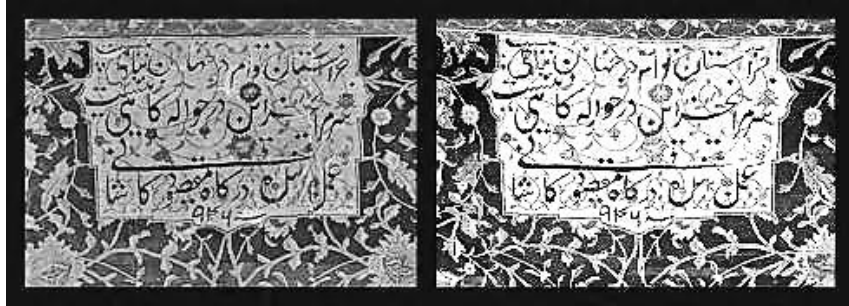 جز آستان توام در جهان پناهی نیست
سر مرا بجز این در حواله کاهی نیست
عمل بنده درکاه مقصود کاشانی
سنه ۹۴۶
جز آستان توام در جهان پناهی نیست
سر مرا بجز این در حواله کاهی نیست
عمل بنده درکاه مقصود کاشانی
سنه ۹۴۶